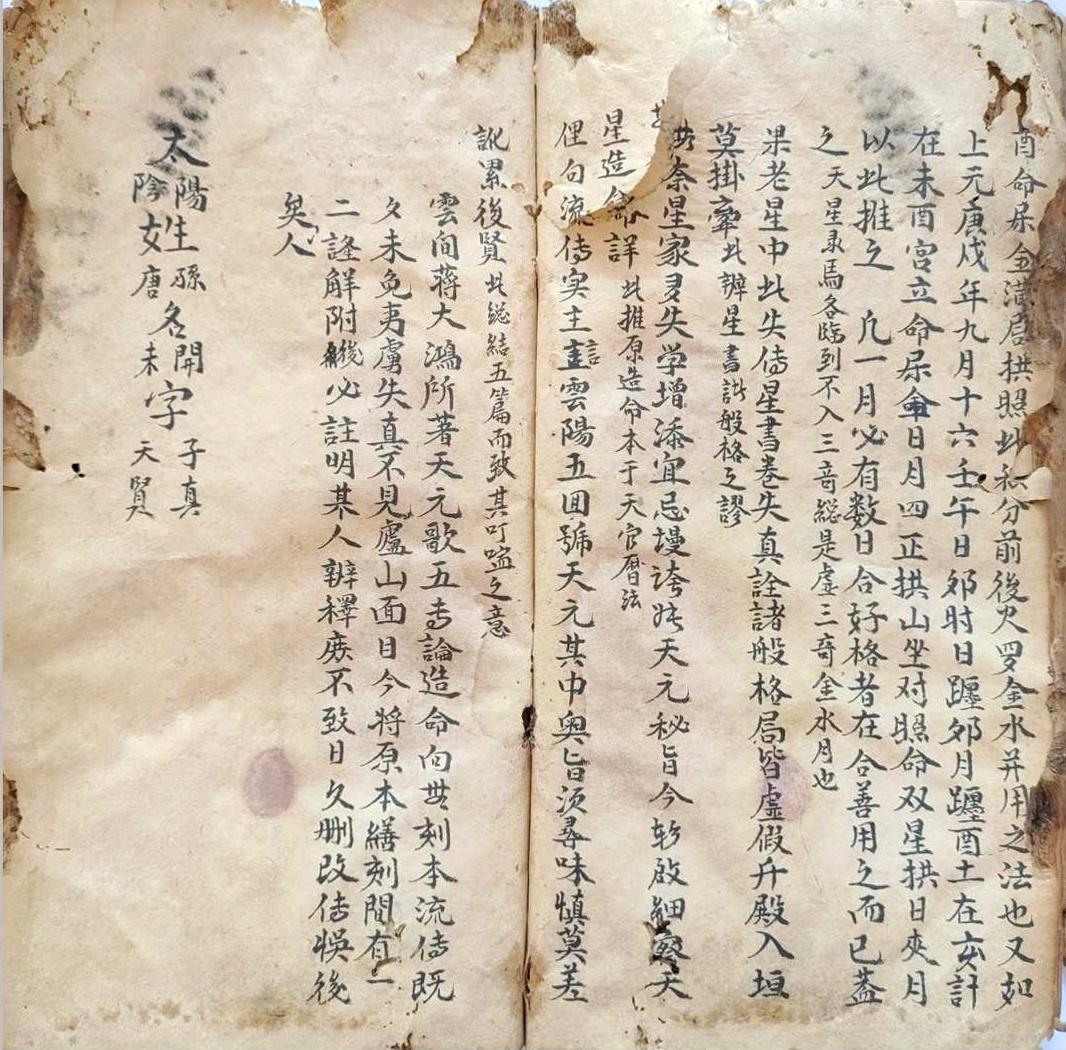 酉命居金躔居拱照此秋分前後火羅金水并用之法也又如
上元庚戌年九月十六壬午日夘时日躔夘月躔酉土在亥計
在未酉宮立命居金日月四正拱山坐对照命双星拱日夾月
以此推之凢一月必有数日合好格者在合善用之而已盖
之天星录馬各臨到不入三竒総是虚三竒金水月也
果老星中此失傳星書巻失真詮諸般格局皆虚假升殿入垣
莫掛牽此辨星書諸般格之謬
奈星家多失学增添宜忌墁誇姹天元秘旨今斩啟細察天
星造命詳此推原造命本于天官曆法
俚句流傳实主言雲陽五囬號天元其中奥旨湏尋味慎莫差
訛累後賢此総結五篇而致其叮嚀之意
雲间蔣大鴻所著天元歌五耑論造命向無刻本流傳既
夂未免夷虜失真不見廬山面目今將原本繕刻間有一
二諡解附後必註明某人辨釋庻不致日久刪改傳悞後
矣人
太陽姓孫名開字子真
陰女唐未天賢